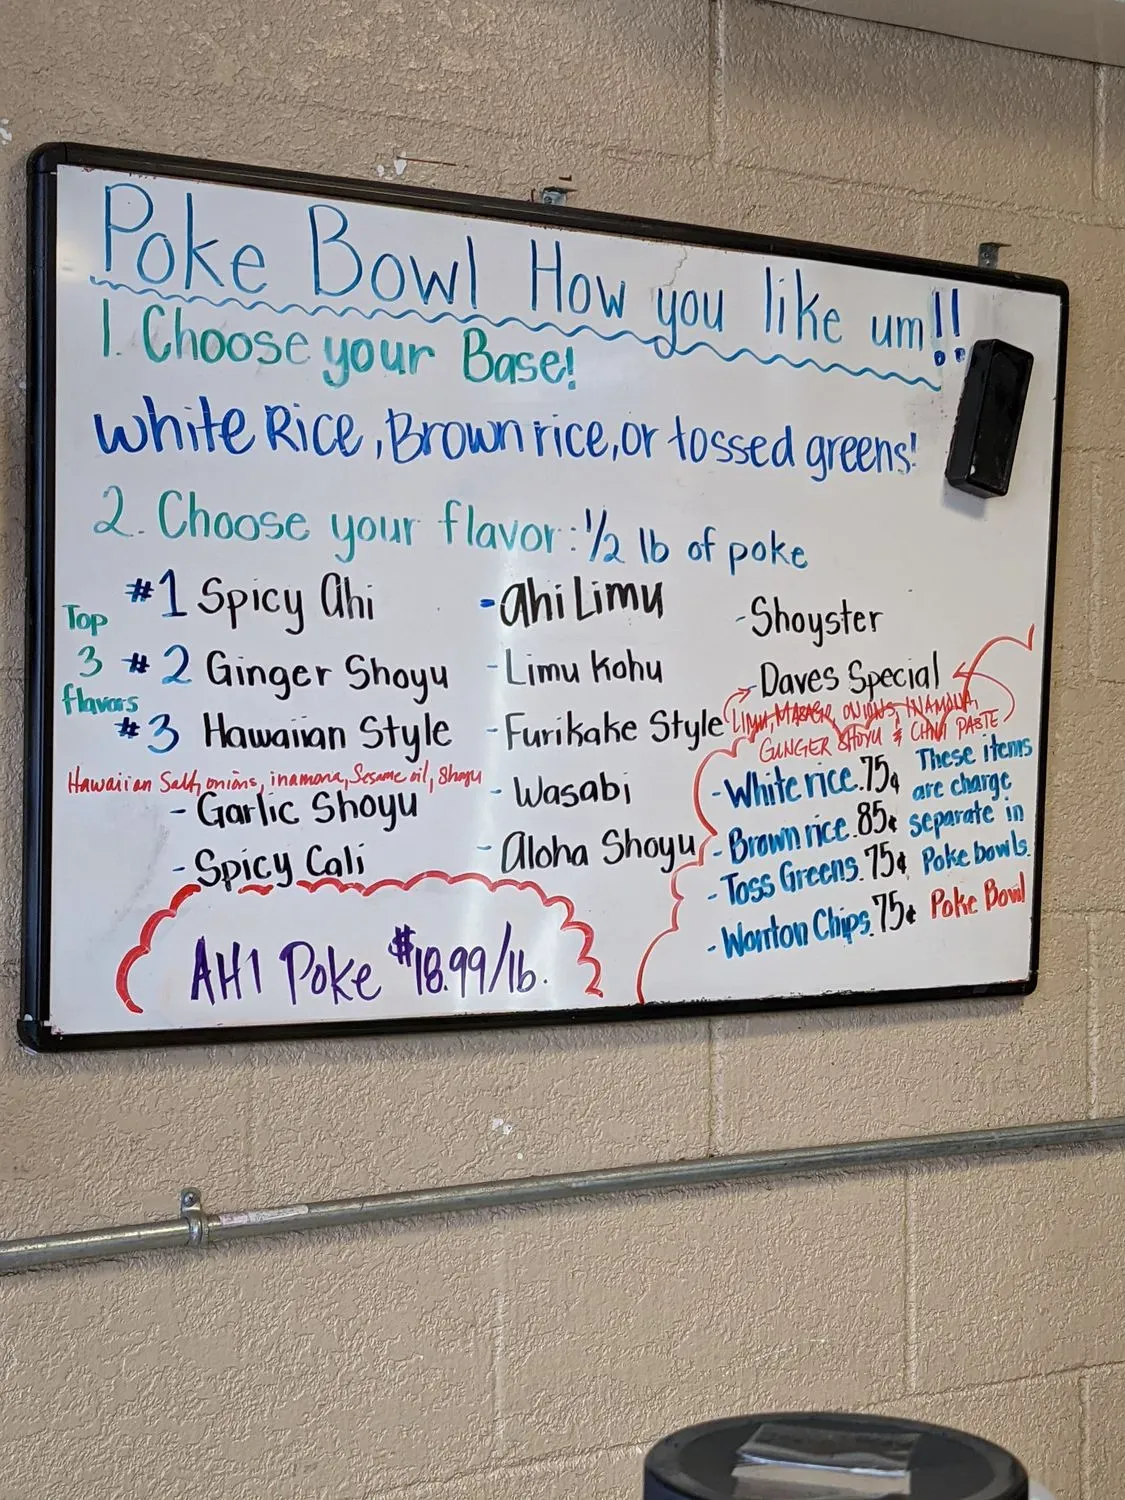 Poke Bowl How you like um!!
1. Choose your Base!
White Rice, Brown rice, or tossed greens!
2. Choose your flavor: 1/2 lb of poke
Top 3 flavors
#1 Spicy Ahi
#2 Ginger Shoyu
#3 Hawaiian Style
Hawaiian Salt, onions, inamona, Sesame oil, Shoyu
- Garlic Shoyu
- Spicy Cali
- Ahi Limu
- Limu Kohu
- Furikake Style
- Wasabi
- Aloha Shoyu
- Shoyster
- Daves Special
LIMU, ONIONS, INAMONA,
GINGER SHOYU & CHILI PASTE
- White rice .75¢
- Brown rice .85¢
- Toss Greens .75¢
- Wonton Chips .75¢
These items
are charge
separate in
Poke bowls.
Poke Bowl
AHI Poke $18.99/lb.